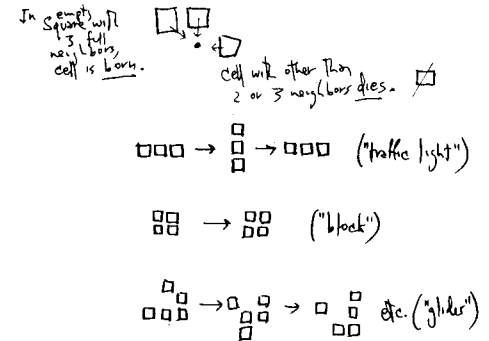 In empty
Square with
3 full
neighbors,
cell is born.
cell with other than
2 or 3 neighbors dies.
("traffic light")
("block")
etc. ("glider")